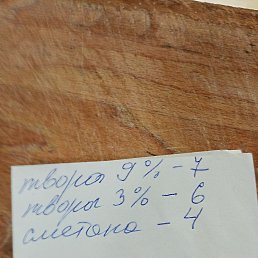 творог 9% - 7
творог 3% - 6
сметана - 4